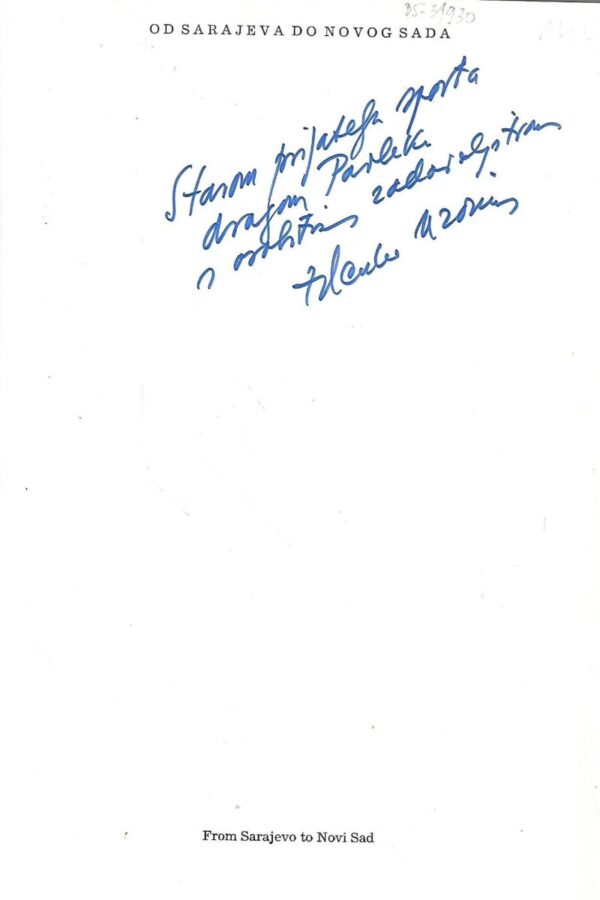 35-31930
OD SARAJEVA DO NOVOG SADA
Starom prijatelju sporta
dragom Pavleku
s osobitim zadovoljstvom
Uzorinac
From Sarajevo to Novi Sad